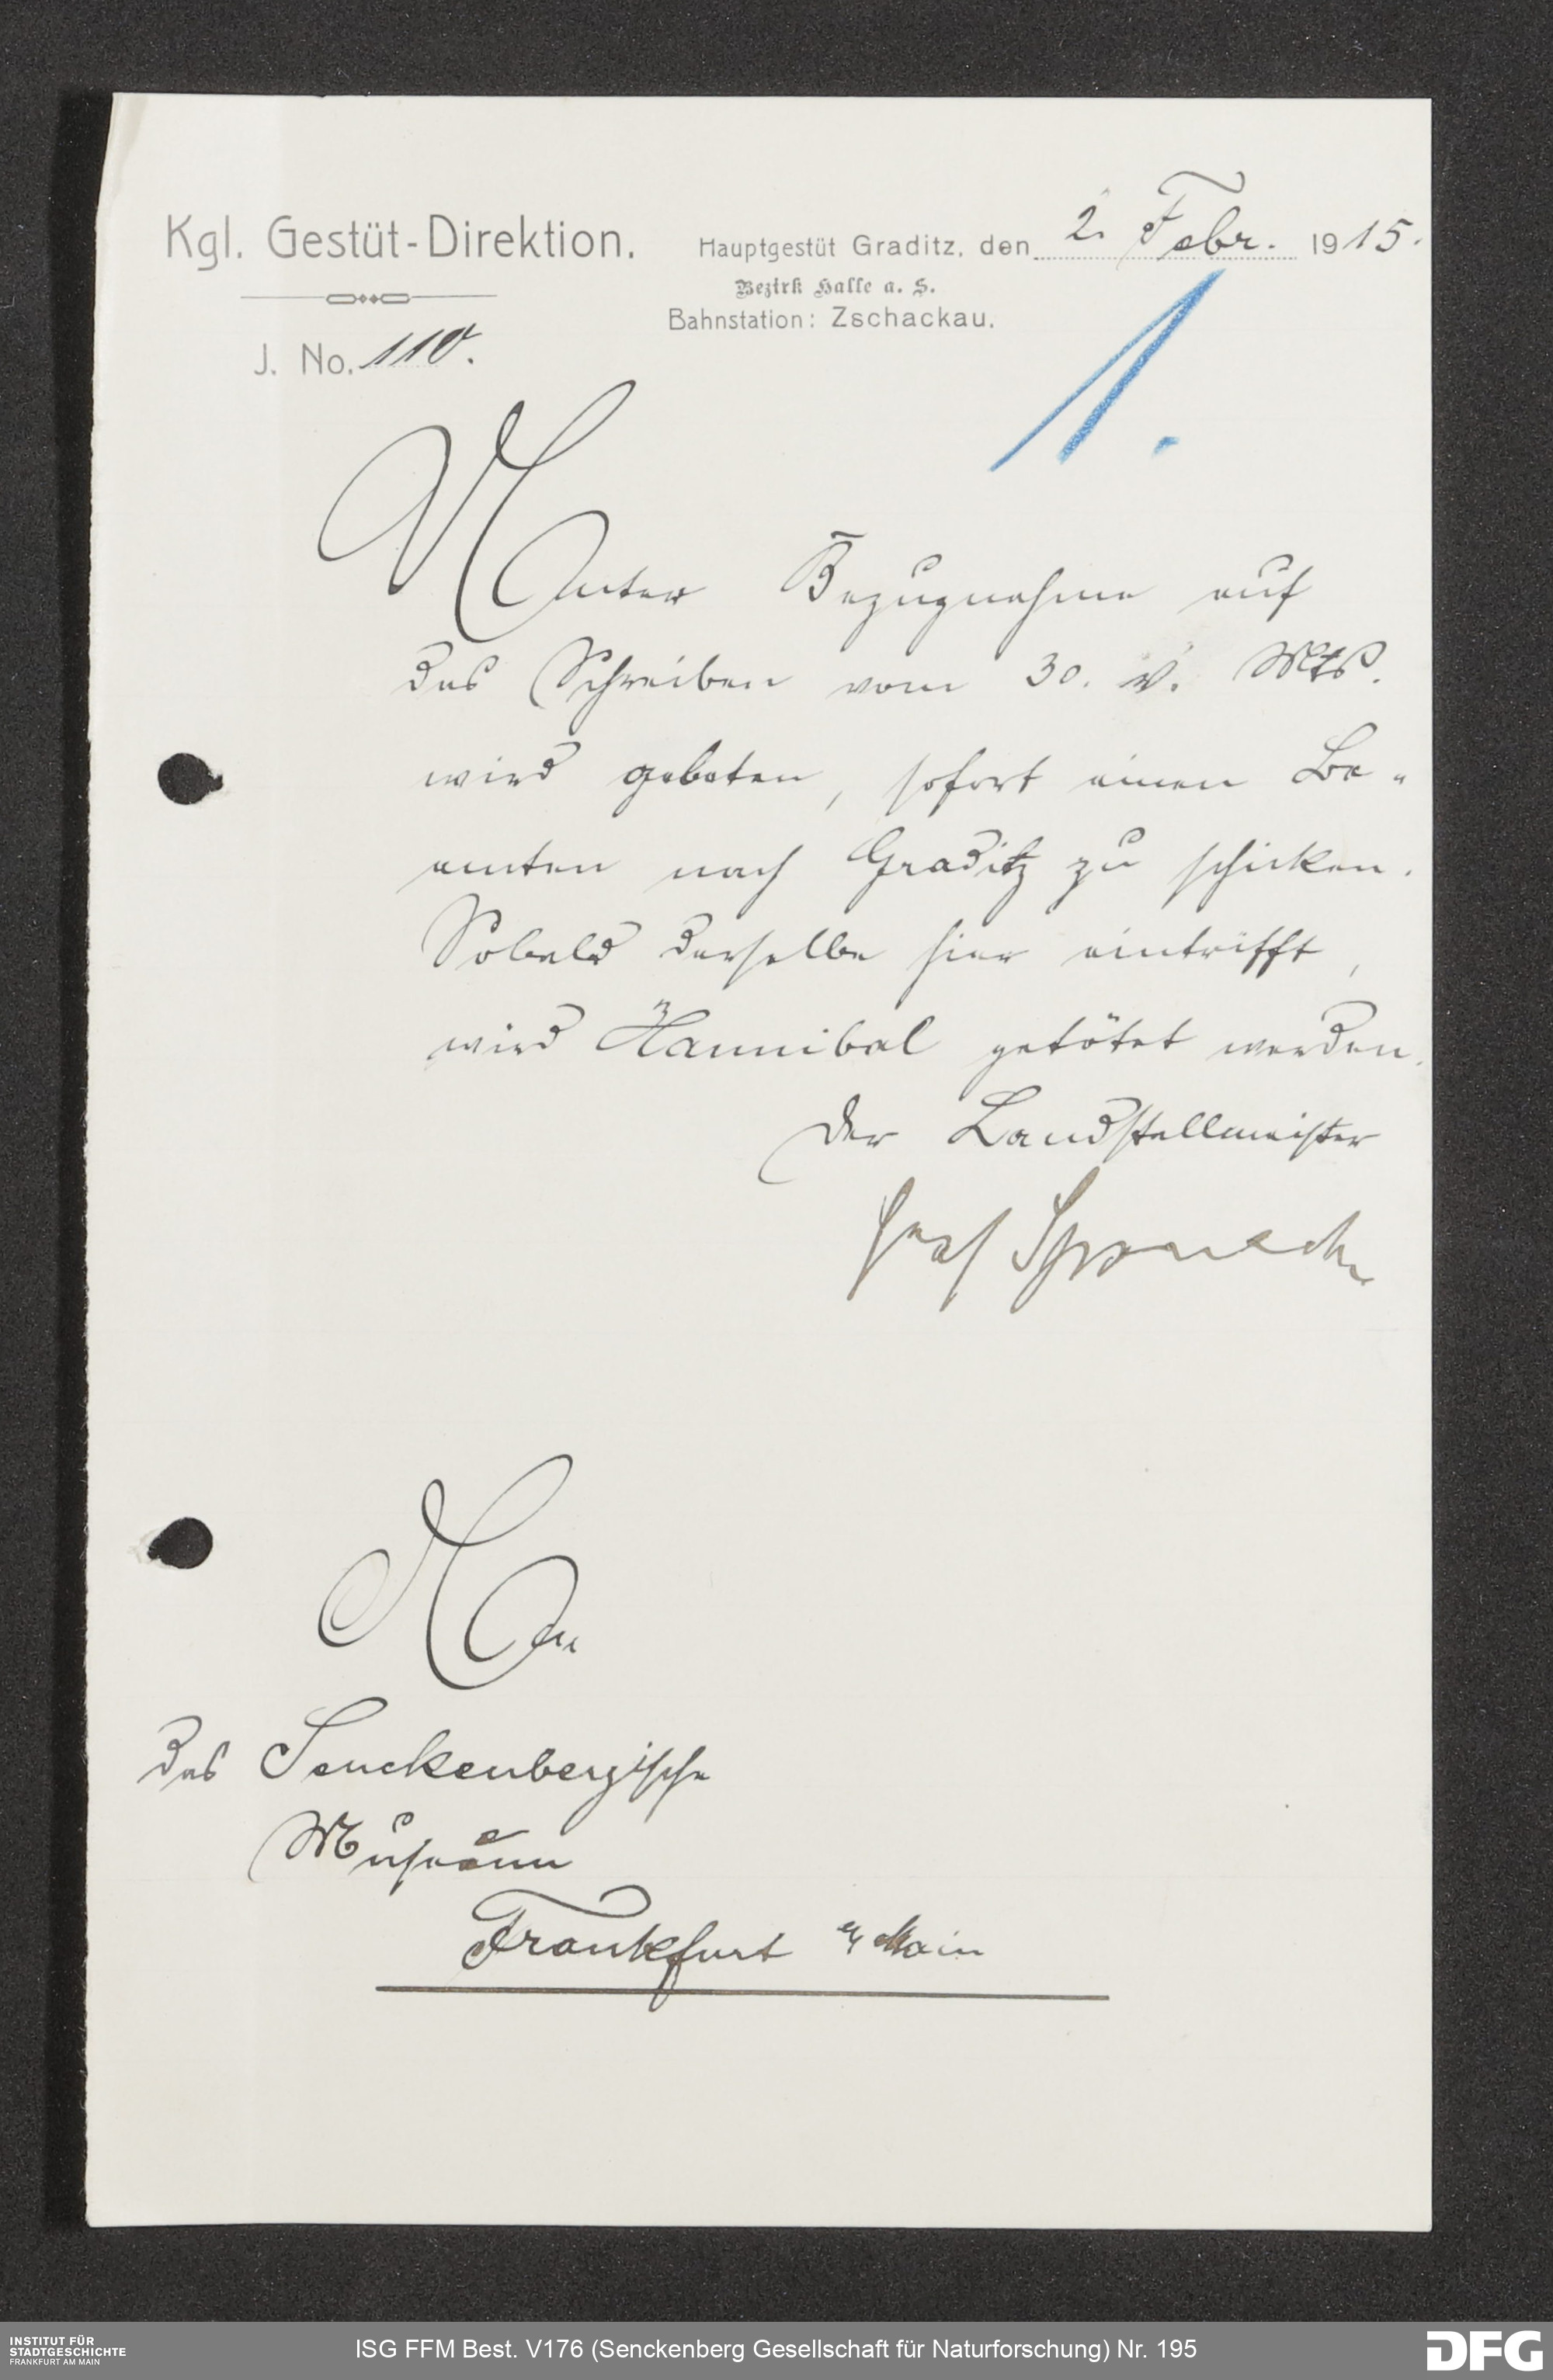 Kgl. Gestüt-Direktion.
Hauptgestüt Graditz, den 2. Febr. 1915.
Bezirk Halle a. S.
Bahnstation: Zschackau.
J. No. 110.
1.
Unter Bezugnahme auf
das Schreiben vom 30. v. Mts.
wird gebeten, sofort einen Be-
amten nach Graditz zu schicken.
Sobald derselbe hier eintrifft,
wird Hannibal getötet werden.
Der Landstallmeister
Graf
An
das Senckenbergische
Museum
Frankfurt a/Main
INSTITUT FÜR
STADTGESCHICHTE
FRANKFURT AM MAIN
ISG FFM Best. V176 (Senckenberg Gesellschaft für Naturforschung) Nr. 195
DFG